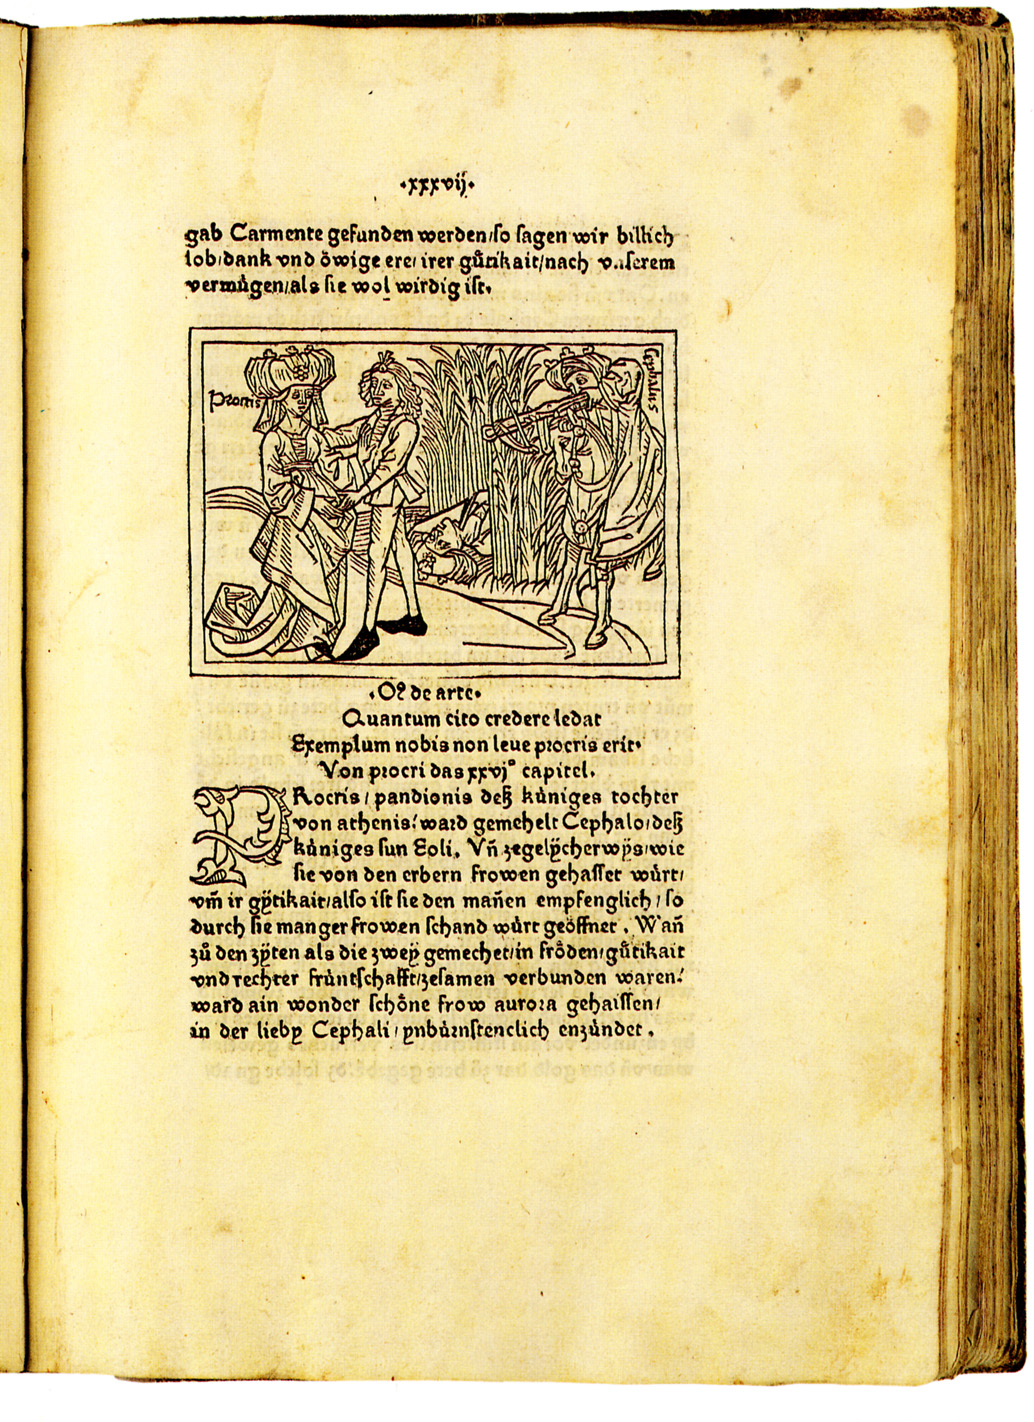 ·xxxvij·
gab Carmente gefunden werden/so sagen wir billich
lob/dank vnd öwige ere/irer gůtikait/nach vnserem
vermügen/als sie wol wirdig ist.
Procris
Cephalus
·Oꝰ de arte·
Quantum cito credere ledat
Exemplum nobis non leue procris erit·
Von procri das xxvjº capitel.
PRocris/pandionis deß küniges tochter
von athenis/ward gemehelt Cephalo/deß
küniges sun Eoli. Vñ zegelÿcherwÿs/wie
sie von den erbern frowen gehasset würt/
vm̃ ir gÿtikait/also ist sie den mañen empfenglich/so
durch sie manger frowen schand würt geöffnet. Wañ
zů den zÿten als die zweÿ gemechet/in frôden/gůtikait
vnd rechter früntschafft/zesamen verbunden waren/
ward ain wonder schône frow aurora gehaissen/
in der lieby Cephali/ynbürnstenclich enzündet.